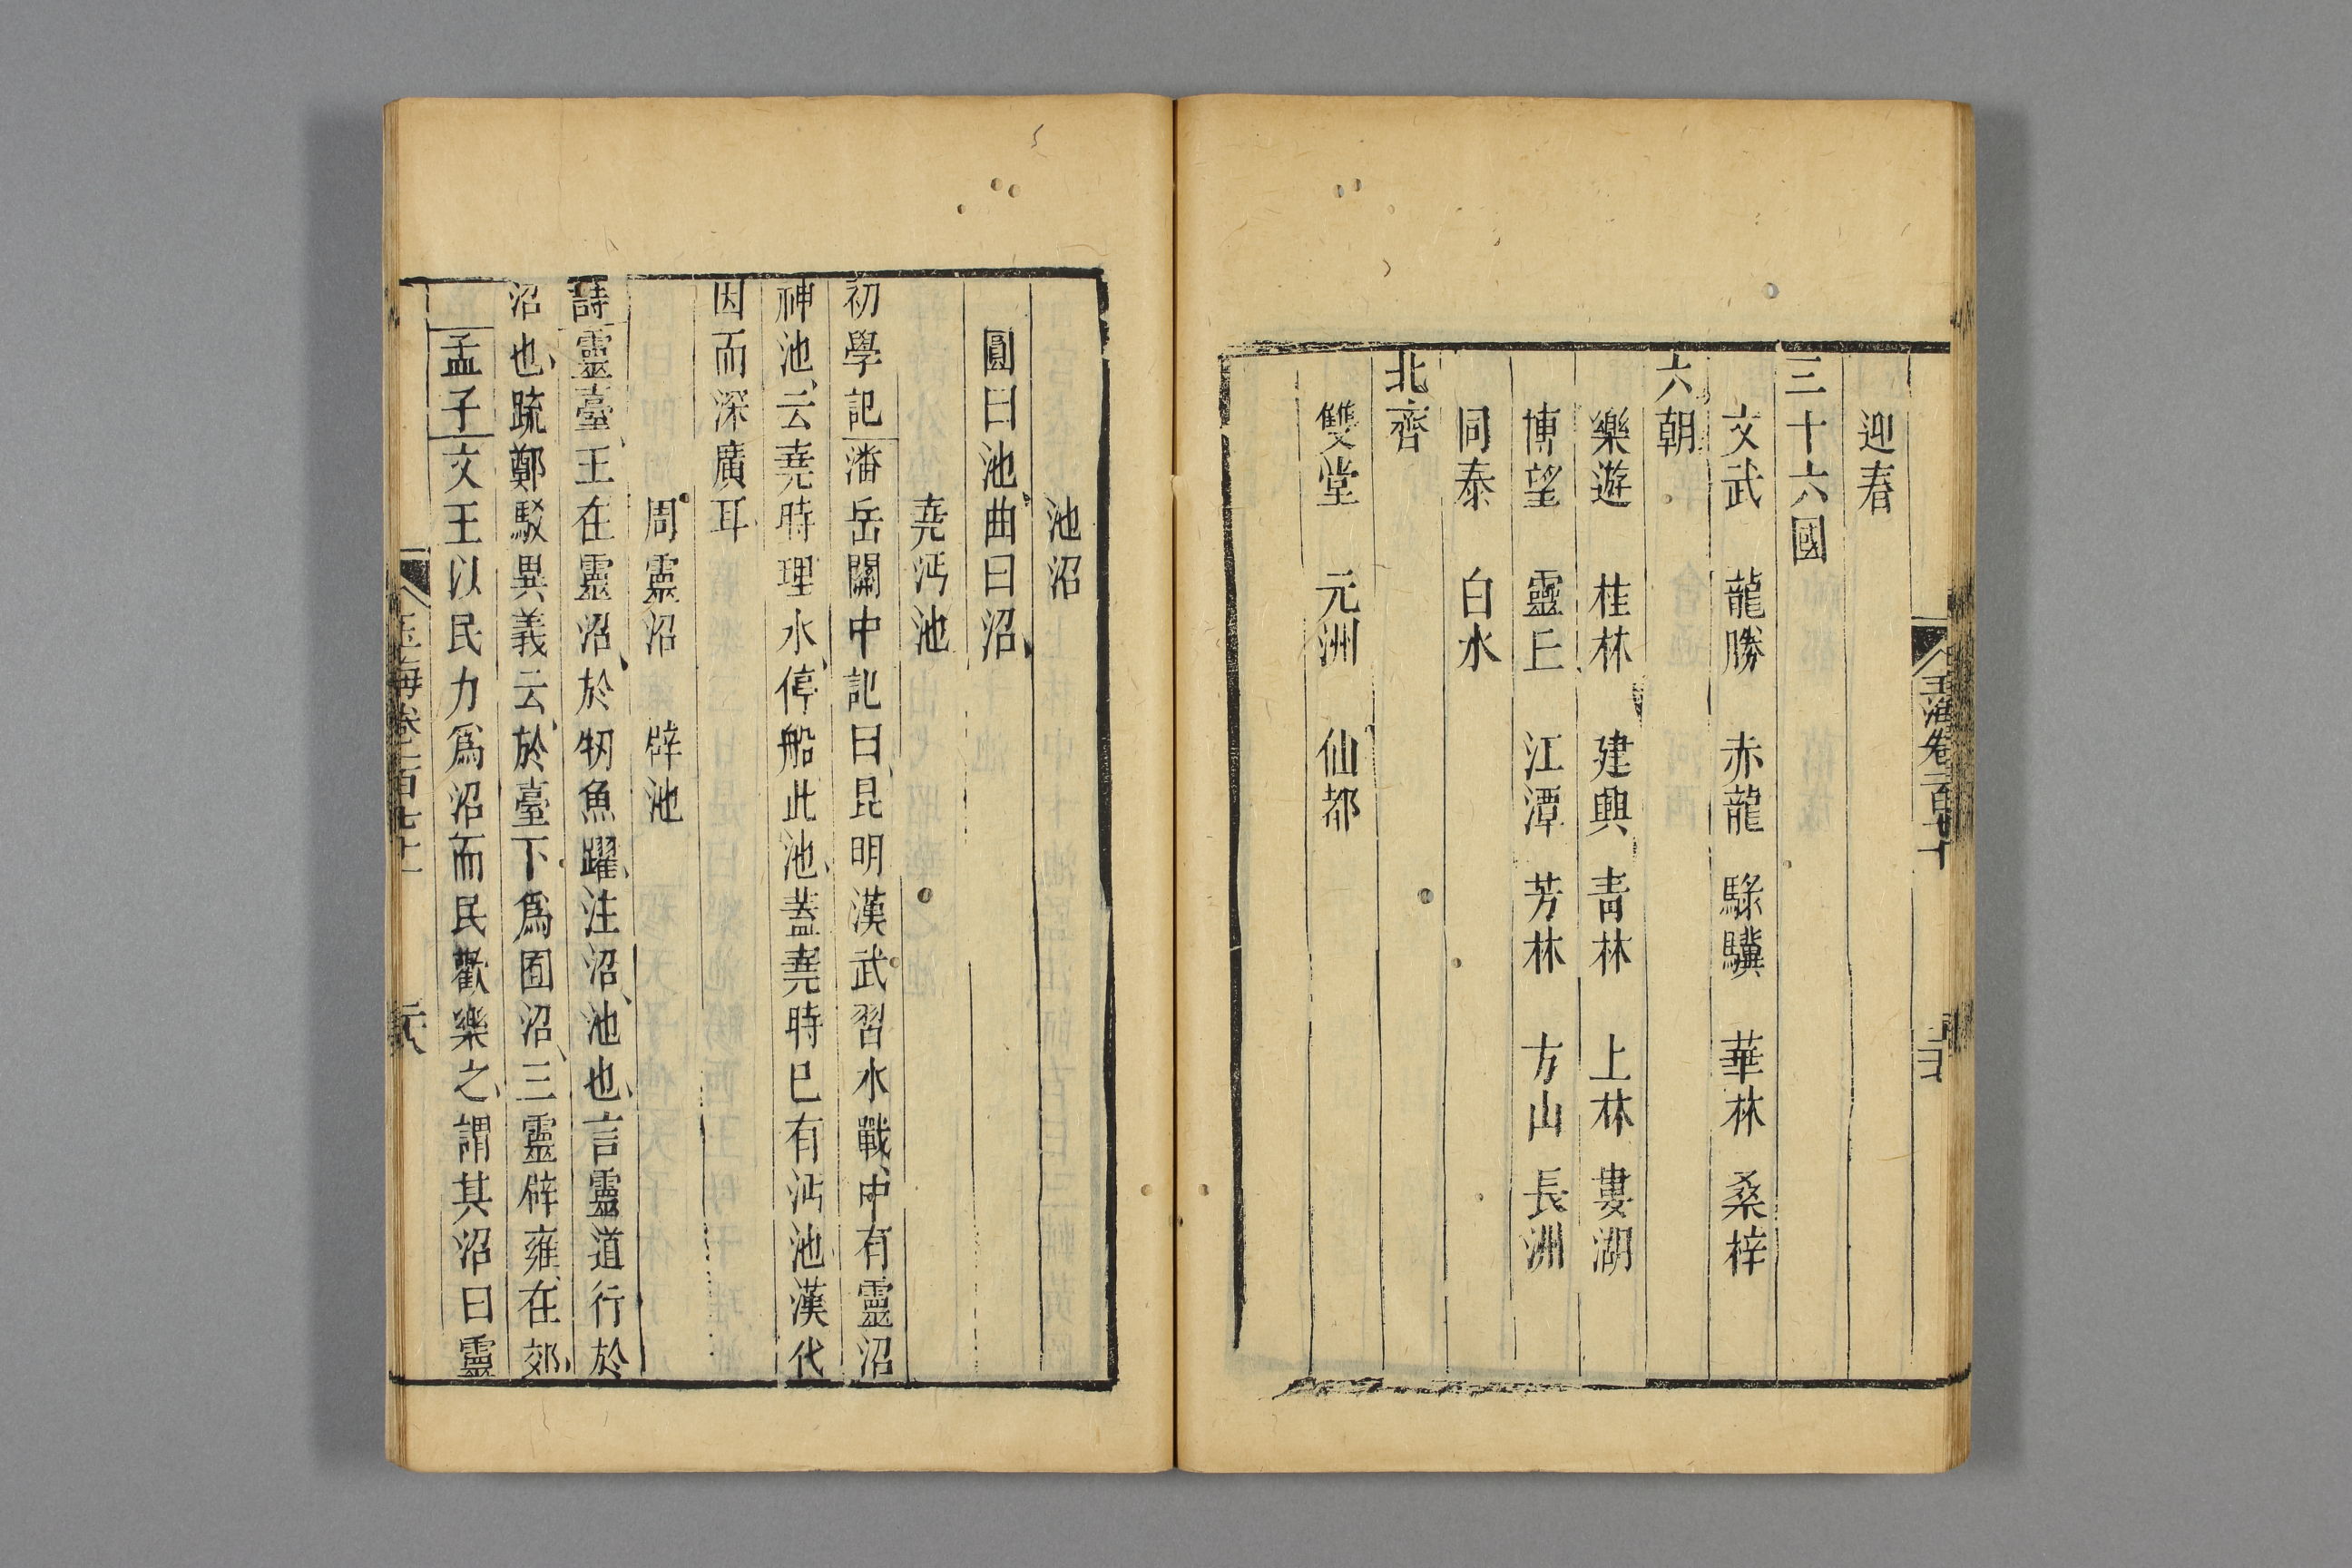 迎春
三十六國
文武　龍勝　赤龍　騄驥　華林　桑梓
六朝
樂遊　桂林　建興　青林　上林　婁湖
博望　靈丘　江潭　芳林　方山　長洲
同泰　白水
北齊
雙堂　元洲　仙都
池沼
圓曰池曲曰沼
堯沔池
初學記潘岳關中記曰昆明漢武習水戰中有靈沼
神池云堯時理水停船此池蓋堯時已有沔池漢代
因而深廣耳
周靈沼　辟池
詩靈臺王在靈沼於牣魚躍注沼池也言靈道行於
沼也疏鄭駁異義云於臺下爲囿沼三靈辟雍在郊
孟子文王以民力爲沼而民歡樂之謂其沼曰靈
玉海卷一百七十一